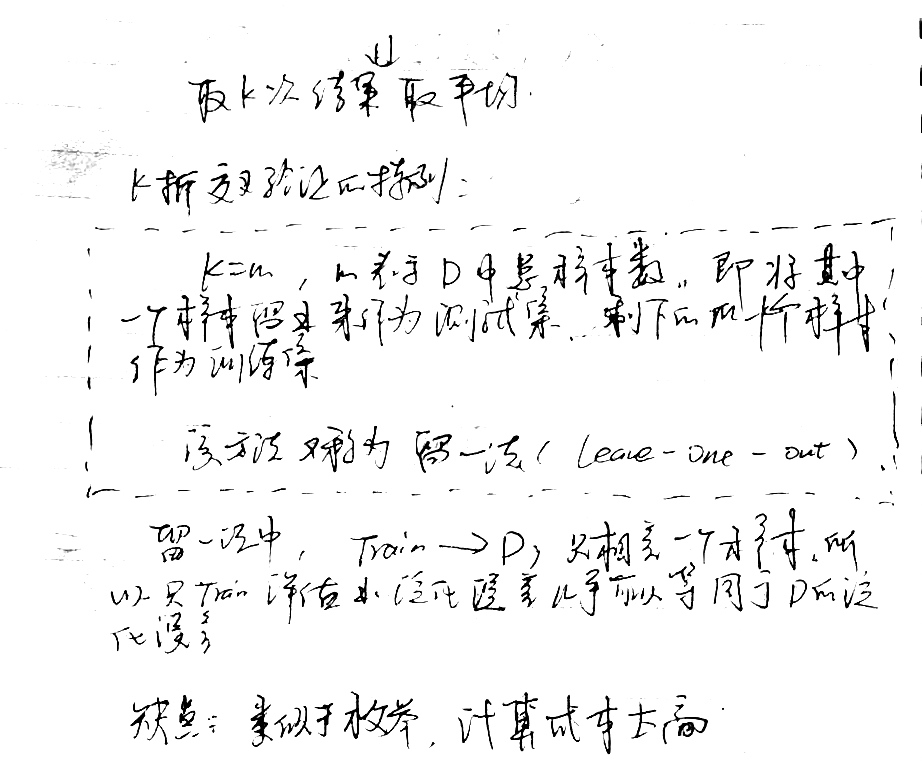 取K次结果取平均.
K折交叉验证的特例：
K=m，m表示D中总样本数，即将其中
一个样本留出来作为测试集，剩下的m-1个样本
作为训练集
该方法又称为留一法（Leave-one-out）.
留一法中，Train→D，只相差一个样本，所
以只Train评估出泛化误差几乎可以等同于D的泛
化误差
缺点：类似于枚举，计算成本太高.